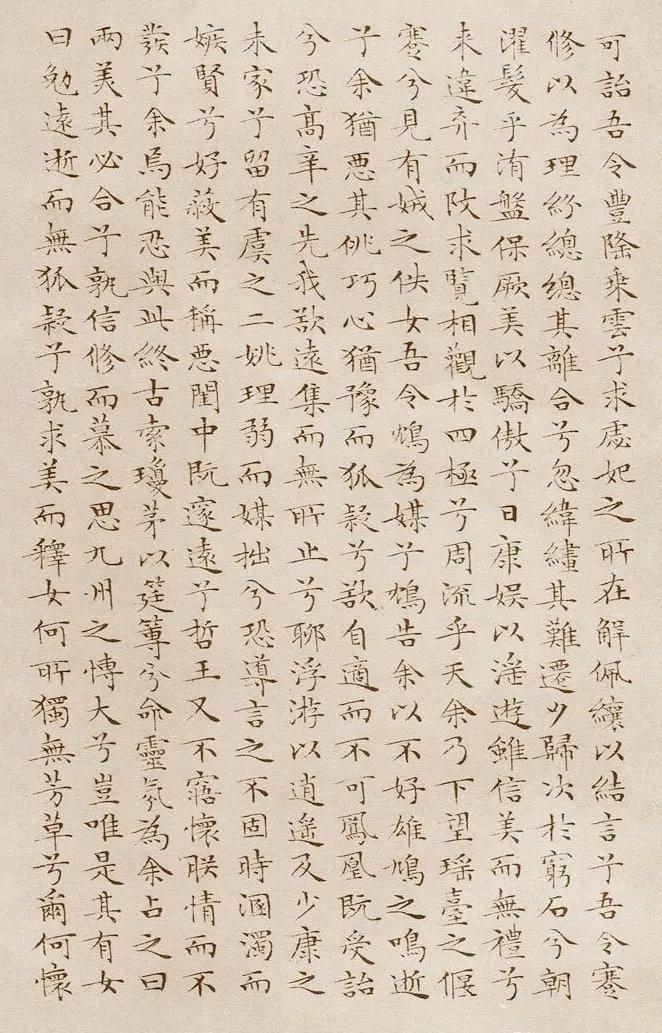 可詒吾令豐隆乘雲兮求虙妃之所在解佩纕以結言兮吾令蹇
修以為理紛總總其離合兮忽緯繣其難遷夕歸次於窮石兮朝
濯髮乎洧盤保厥美以驕傲兮日康娛以淫遊雖信美而無禮兮
來違弃而改求覽相觀於四極兮周流乎天余乃下望瑤臺之偃
蹇兮見有娀之佚女吾令鴆為媒兮鴆告余以不好雄鳩之鳴逝
兮余猶惡其佻巧心猶豫而狐疑兮欲自適而不可鳳凰既受詒
兮恐高辛之先我欲遠集而無所止兮聊浮游以逍遙及少康之
未家兮留有虞之二姚理弱而媒拙兮恐導言之不固時溷濁而
嫉賢兮好蔽美而稱惡閨中既邃遠兮哲王又不寤懷朕情而不
發兮余焉能忍與此終古索瓊茅以筳篿兮命靈氛為余占之曰
兩美其必合兮孰信修而慕之思九州之博大兮豈唯是其有女
曰勉遠逝而無狐疑兮孰求美而釋女何所獨無芳草兮爾何懷